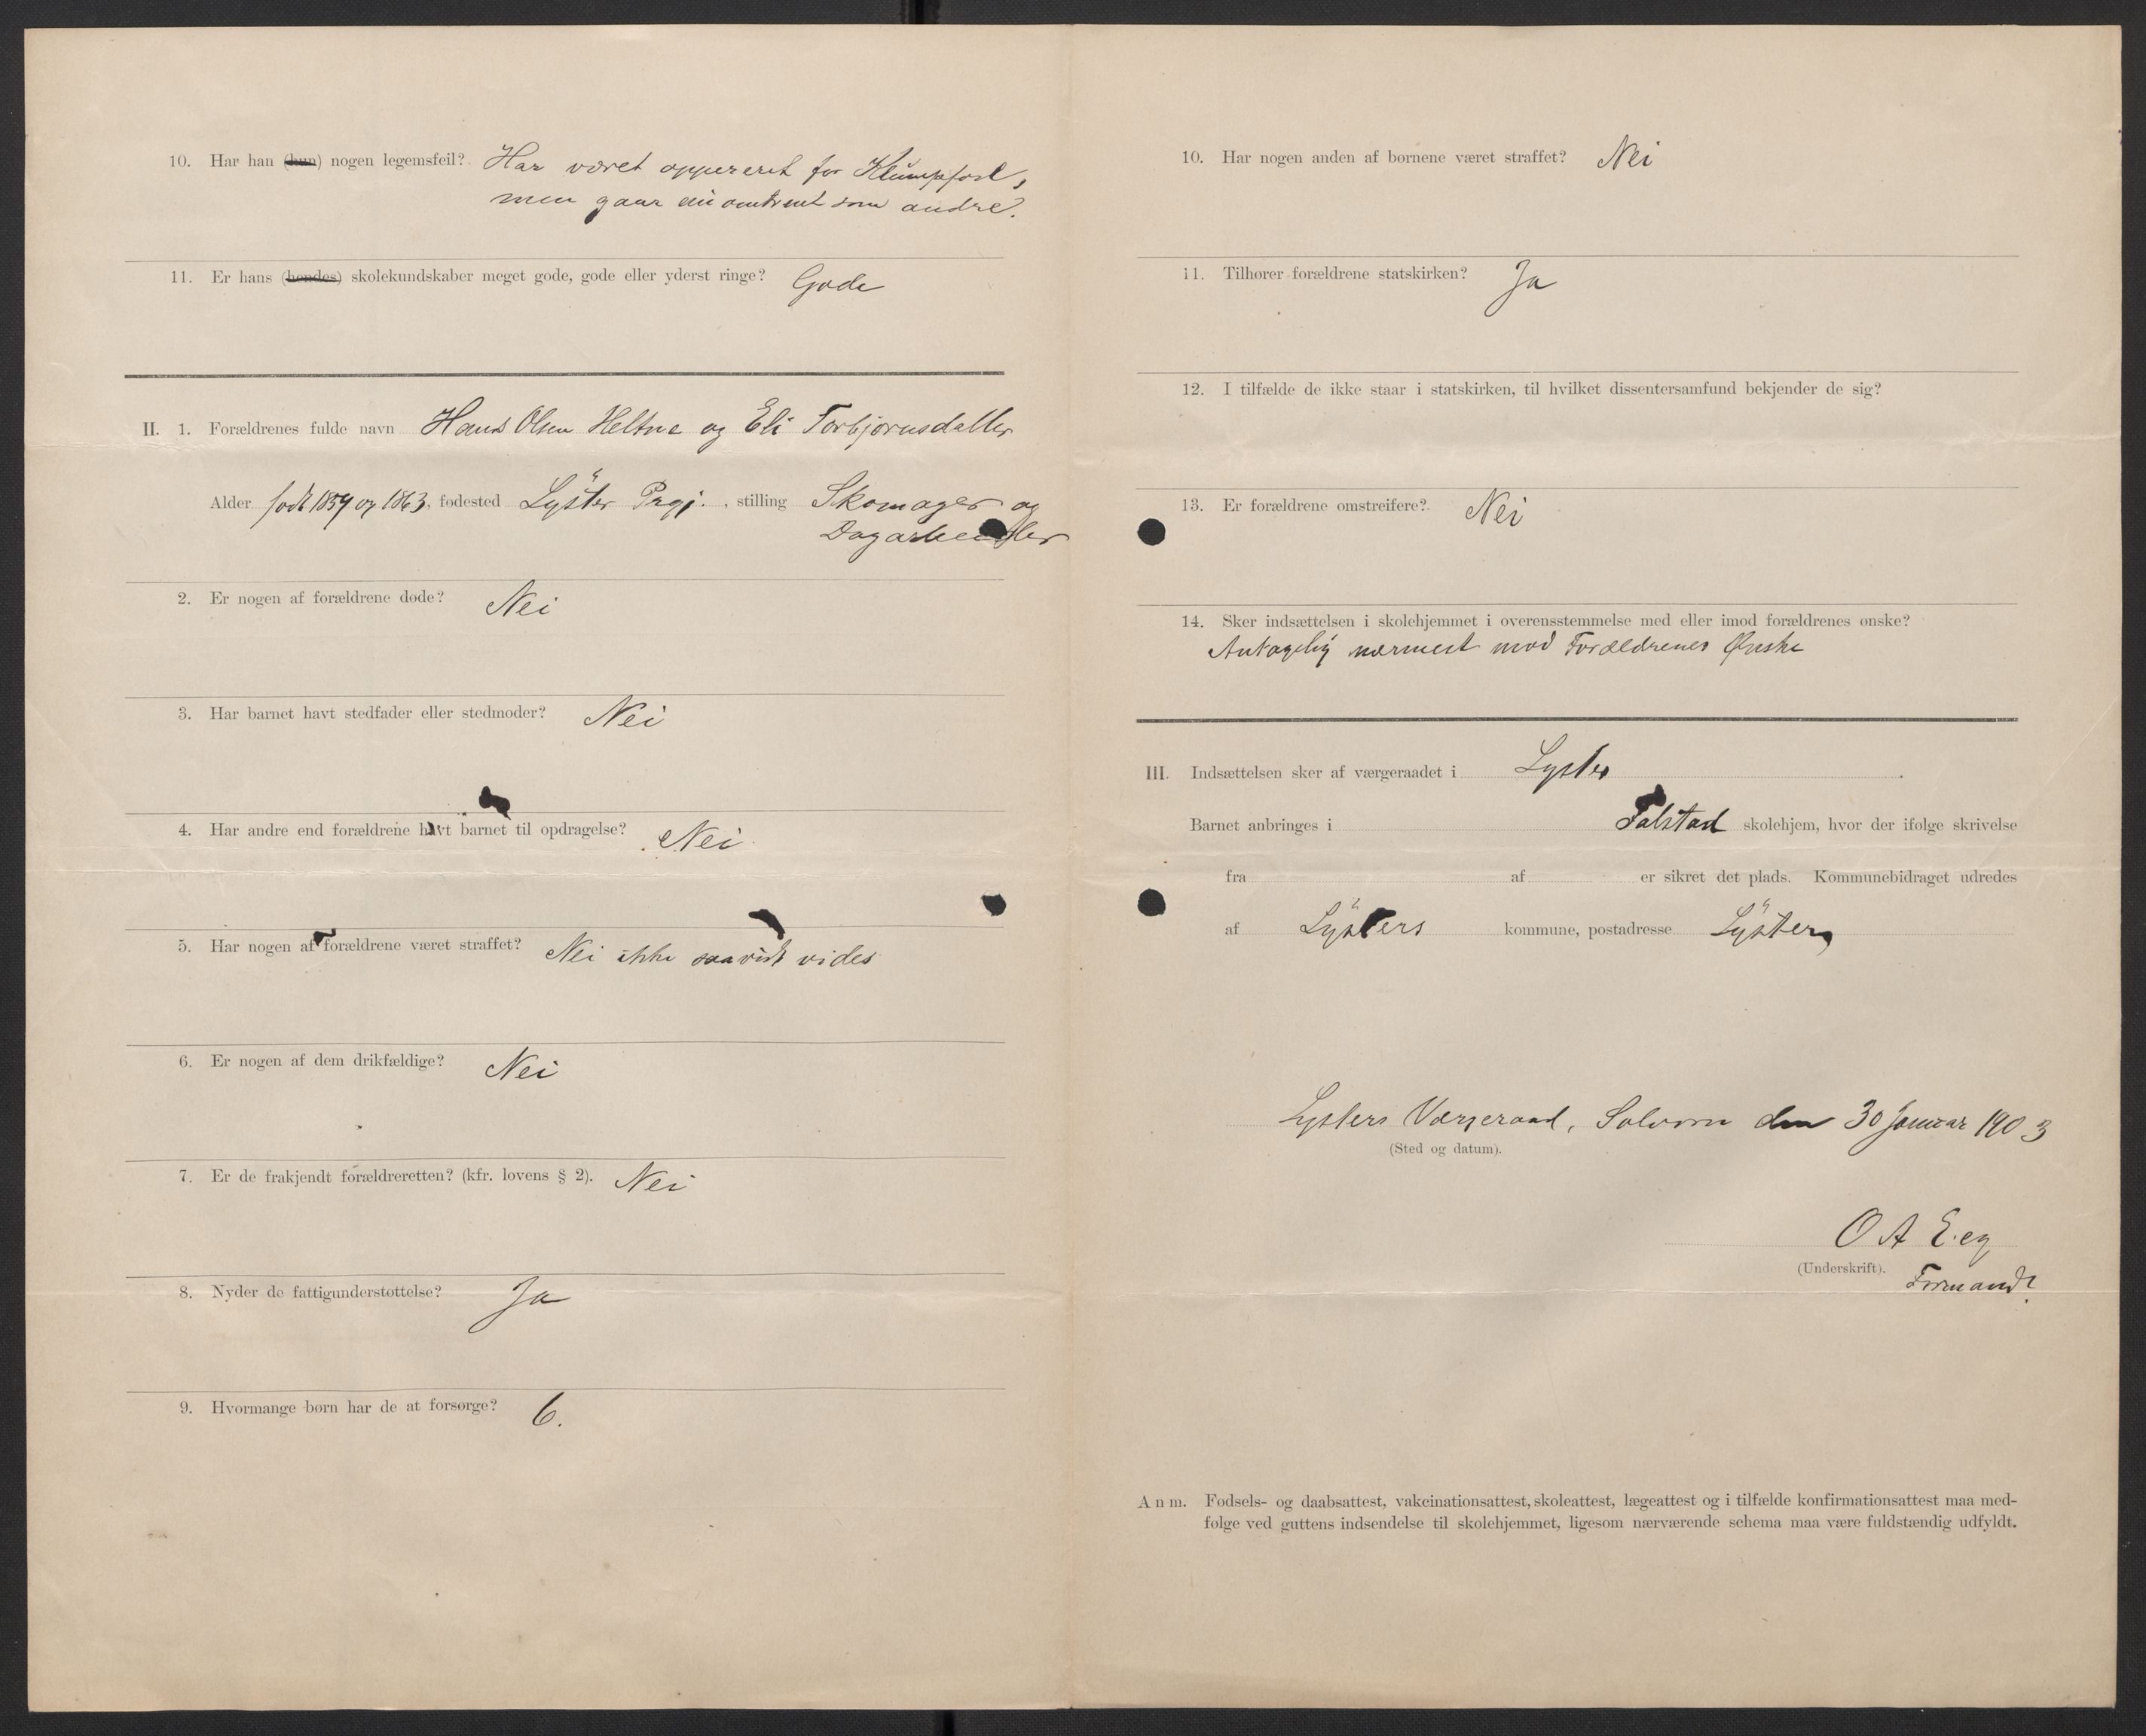 10. Har han (hun) nogen legemsfeil? Har været oppereret for Klumpfod,
men gaar nu omtrent som andre.
11. Er hans (hendes) skolekundskaber meget gode, gode eller yderst ringe? Gode
II. 1. Forældrenes fulde navn Hans Olsen Heltne og Eli Torbjørnsdatter
Alder født 1859 og 1863, fødested Lyster Prgj. , stilling Skomager og
Dagarbeider
2. Er nogen af forældrene døde? Nei
3. Har barnet havt stedfader eller stedmoder? Nei
4. Har andre end forældrene havt barnet til opdragelse? Nei
5. Har nogen af forældrene været straffet? Nei ikke saavidt vides
6. Er nogen af dem drikfældige? Nei
7. Er de frakjendt forældreretten? (kfr. lovens § 2). Nei
8. Nyder de fattigunderstøttelse? Ja
9. Hvormange børn har de at forsørge? 6.
10. Har nogen anden af børnene været straffet? Nei
11. Tilhører forældrene statskirken? Ja
12. I tilfælde de ikke staar i statskirken, til hvilket dissentersamfund bekjender de sig?
13. Er forældrene omstreifere? Nei
14. Sker indsættelsen i skolehjemmet i overensstemmelse med eller imod forældrenes ønske?
Antagelig nærmest mod Forældrenes Ønske
III. Indsættelsen sker af værgeraadet i Lyster
Barnet anbringes i Falstad skolehjem, hvor der ifølge skrivelse
fra af er sikret det plads. Kommunebidraget udredes
af Lysters kommune, postadresse Lyster
Lysters Værgeraad, Solvorn den 30 Januar 1903
(Sted og datum).
O A Eeg
(Underskrift). Formand.
Anm. Fødsels- og daabsattest, vakcinationsattest, skoleattest, lægeattest og i tilfælde konfirmationsattest maa med-
følge ved guttens indsendelse til skolehjemmet, ligesom nærværende schema maa være fuldstændig udfyldt.